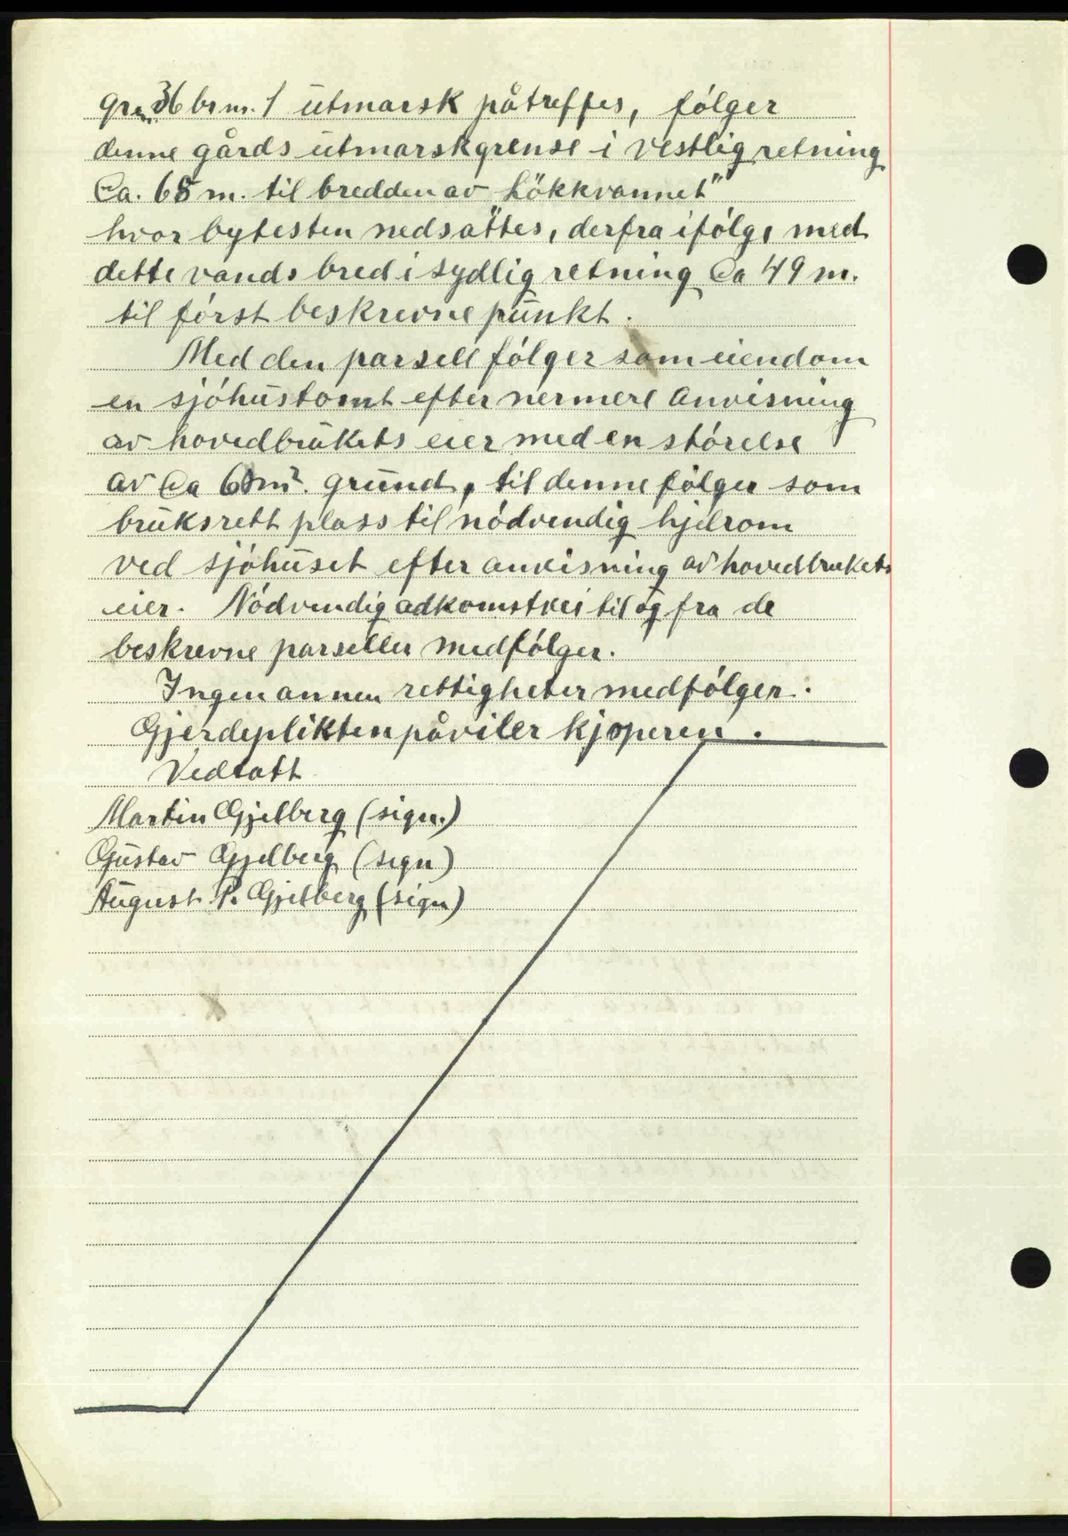 grn. 36 brn. 1 utmarsk påtreffes, fölger
denne gårds utmarskgrense i vestlig retning
Ca. 68 m. til bredden av "Lökkvannet"
hvor bytesten nedsattes, derfra ifölge med
dette vands bred i sydlig retning Ca 49 m.
til först beskrevne punkt.
Med den parsell fölger som eiendom
en sjöhustomt efter nermere anvisning
av hovedbrukets eier med en störelse
av Ca 60 m². grund, til denne fölger som
bruksrett plass til nödvendig hjelrom
ved sjöhuset efter anvisning av hovedbrukets
eier. Nödvendig adkomstvei til og fra de
beskrevne parseller medfölger.
Ingen annen rettigheter medfölger.
Gjerdeplikten påviler kjöperen.
Vedtatt
Martin Gjelberg (sign.)
Gustav Gjelberg (sign)
August P. Gjelberg (sign)